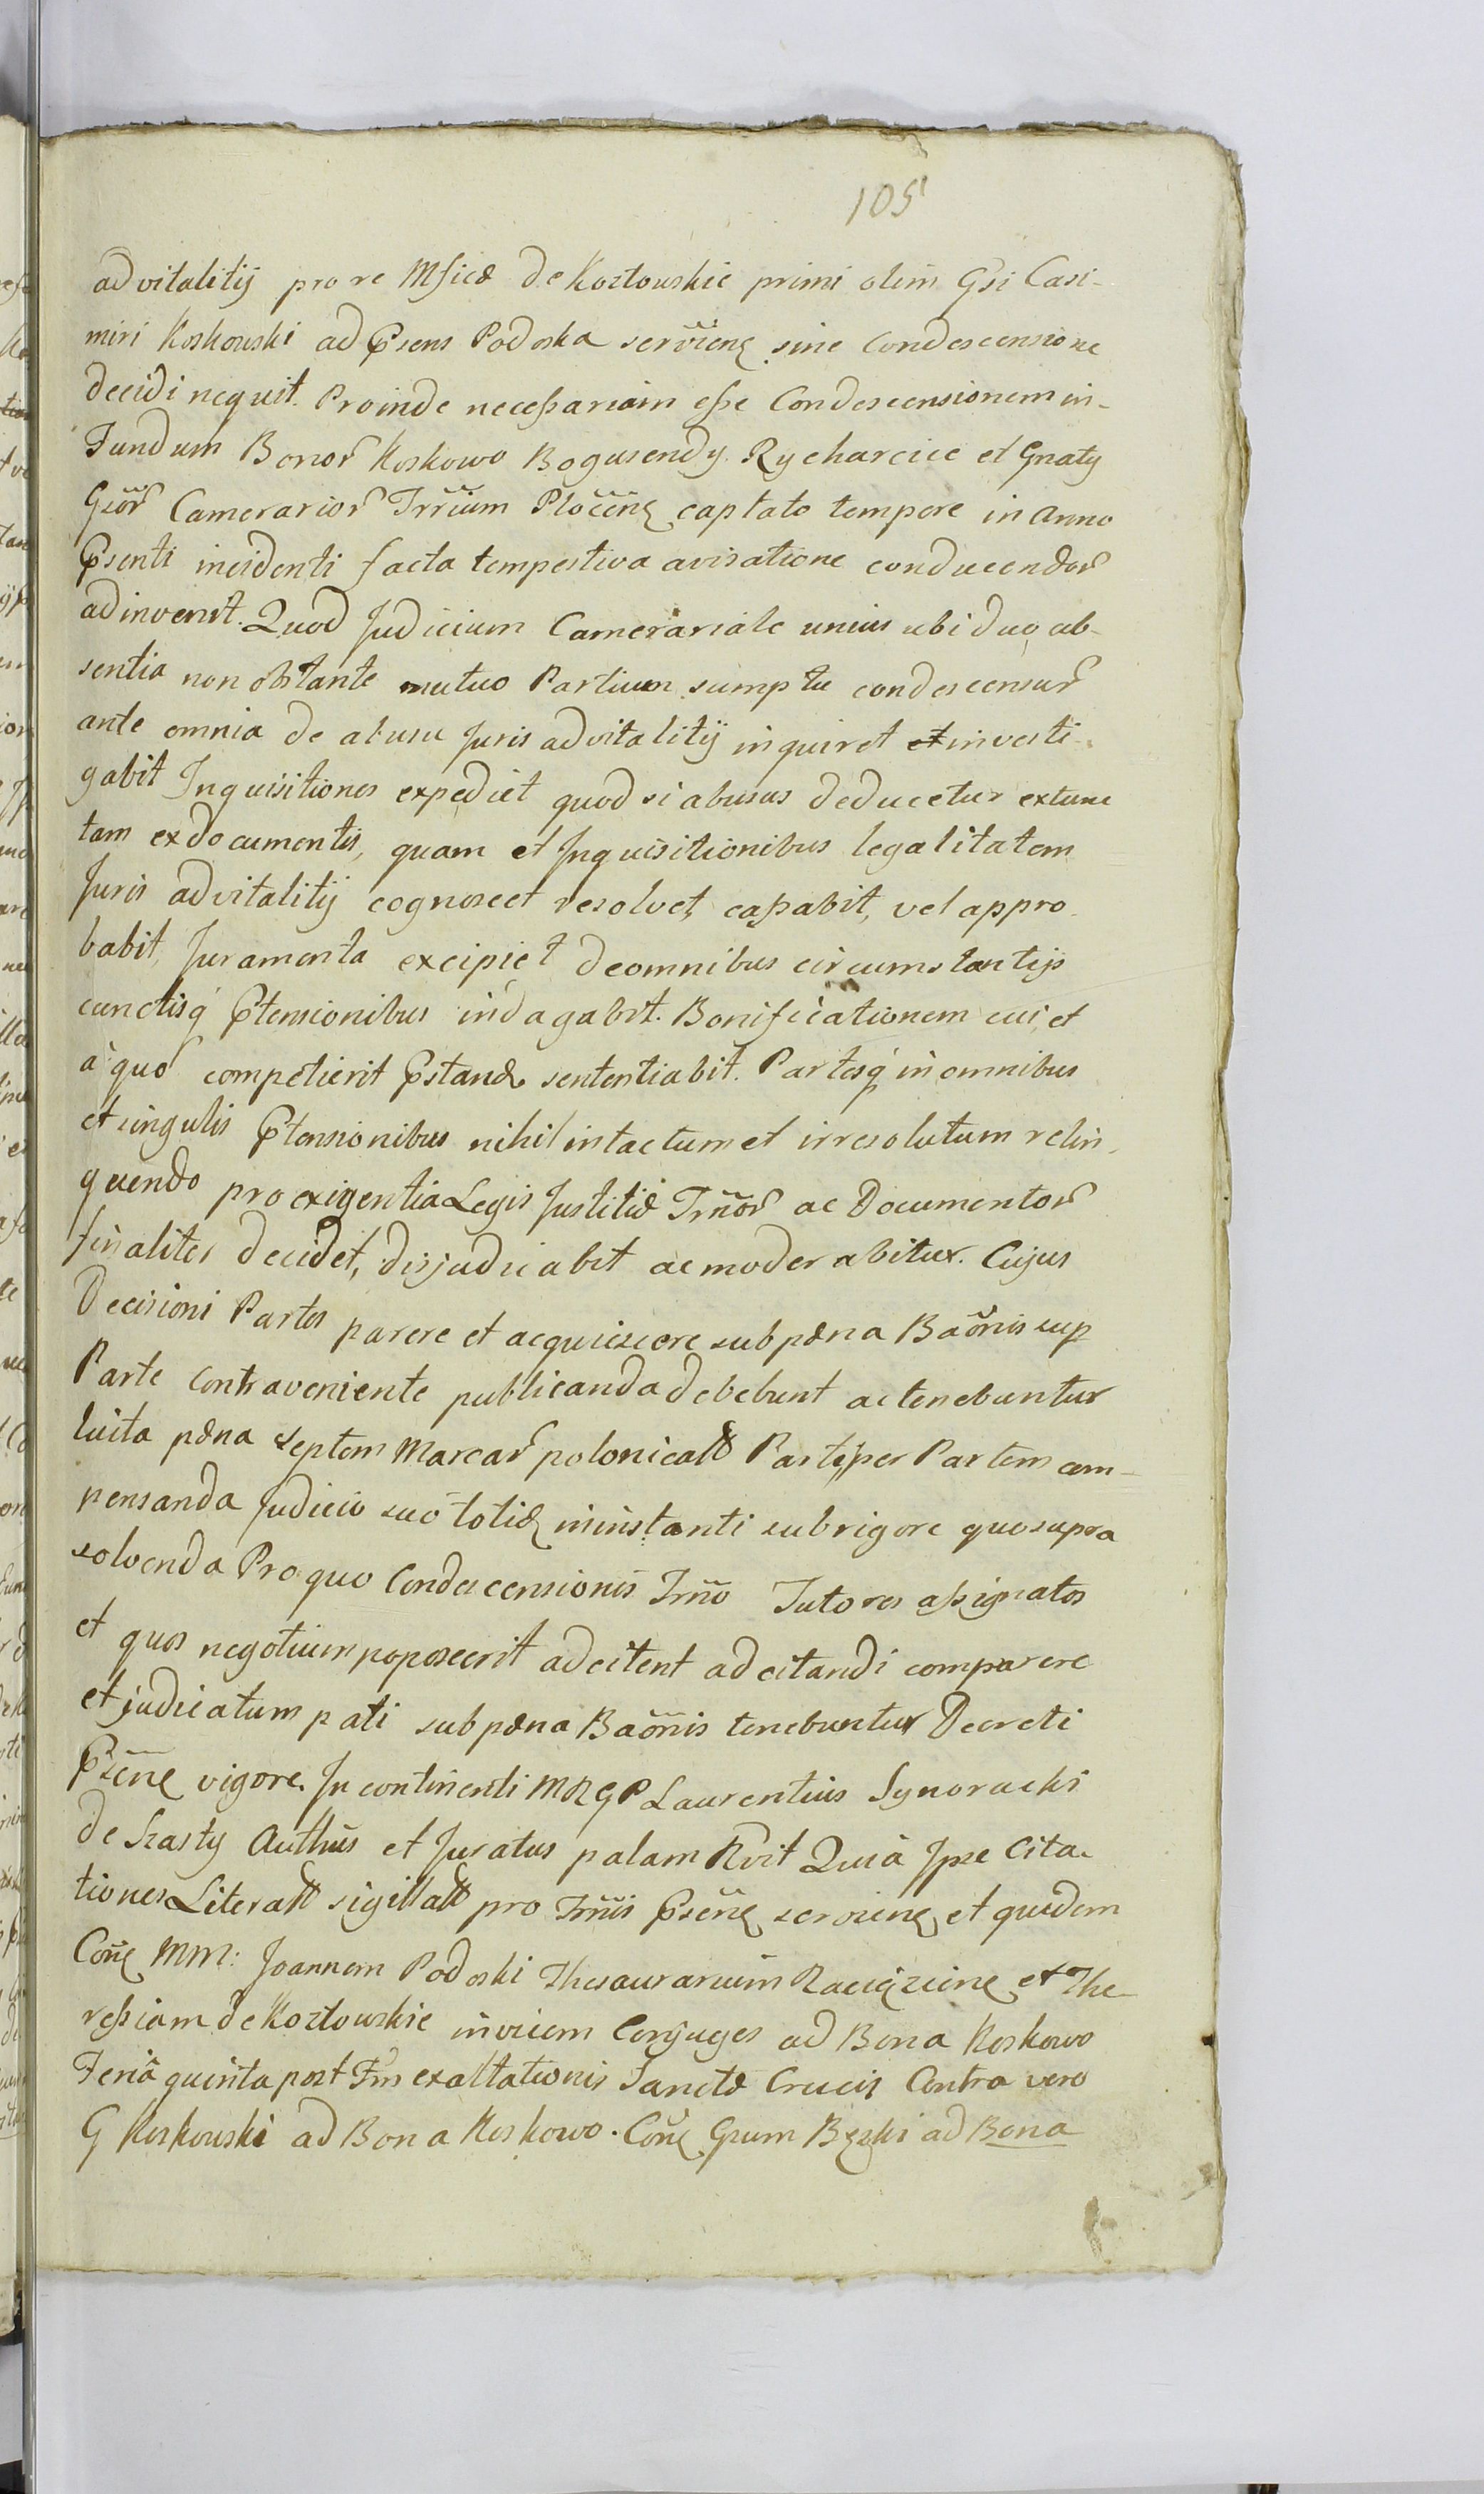 105
advitalitij pro re Mficæ de Kozłowskie primi olim Gsi Casi-
miri Koskowski ad Psens Podoska servien̄ sine Condescensione
decidi nequit. Proinde necessariam esse Condescensionem in-
Fundum Bonor Koskowo Bogusendy Rycharcice et Gnaty
Gsor Camerarior Trrium Płocen̄ captato tempore in Anno
Psenti incidenti facta tempestiva avisatione conducendor
adinvenit. Quod Judicium Camerariale unius ubi duo, ab-
sentia non obstante mutuo Partium sumptu condescensur
ante omnia de abusu Juris advitalitij inquiret et investi-
gabit Inquisitiones expediet quod si abusus deducetur extunc
tam ex documentis, quam et Inquisitionibus legalitatem
Juris advitalitij cognoscet resolvet, cassabit, vel appro-
babit, Juramenta excipiet de omnibus circumstantijs
cunctisq Ptensionibus indagabit. Bonificationem cui, et
à quo competierit Pstandæ sententiabit. Partesq in omnibus
et singulis Ptensionibus nihil intactum et irresolutum relin-
quendo pro exigentia Legis Justitiæ Trnor ac Documentor
finaliter decidet, disjudicabit ac moderabitur. Cujus
Decisioni Partes parere et acquiescere sub pæna Baonis sup
Parte Contraveniente publicanda debebunt ac tenebuntur
luita pæna Septem Marcar polonicalium Parti per Partem com-
pensanda Judicio suo totid in instanti sub rigore quo supra
solvenda Pro quo Condescensionis Trno Tutores assignatos
et quos negotium poposcerit adcitent adcitandi comparere
et judicatum pati sub pæna Baonis tenebuntur Decreti
Psen̄ vigore. In continenti MRGP Laurentius Synoracki
de Szasty Authus et Juratus palam Rvit Quia Ipse Cita-
tiones Literall sigillall pro Trnis Psen̄ servien̄ et quidem
Con̄ MM: Joannem Podoski Thesaurarium Raciązien̄ et The-
ressiam de Kozłowskie invicem Conjuges ad Bona Koskowo
Feria quinta post Fm exaltationis Sanctæ Crucis Contra vero
G Koskowski ad Bona Koskowo. Con̄ Gsum Bęski ad Bona